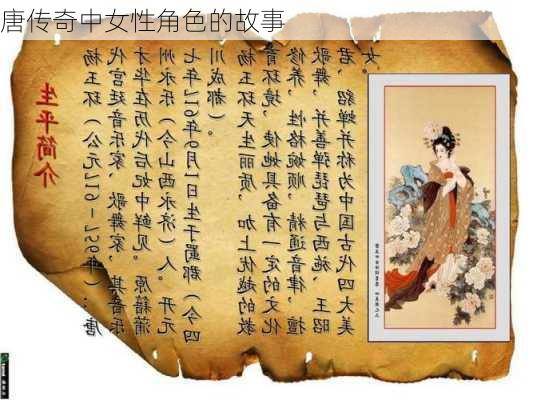 唐传奇中女性角色的故事
生平简介
杨玉环（公元719－756年）：唐
代宫廷音乐家、歌舞家，其音乐
才华在历代后妃中鲜见。原籍蒲
州永乐（今山西永济）人。开元
七年719年6月1日生于蜀郡（今四
川成都）。
杨玉环天生丽质，加上优越的教
育环境，使她具备有一定的文化
修养，性格婉顺，精通音律，擅
歌舞，并善弹琵琶与西施、王昭
君、貂蝉并称为中国古代四大美
女。